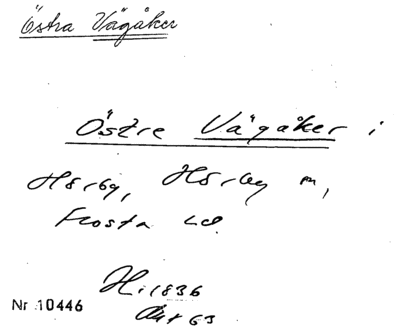 Östra Vägåker
Östre Vägåker i
Hörby, Hörby sn,
Frosta hd.
H. 1836
Akt 63
Nr 10446